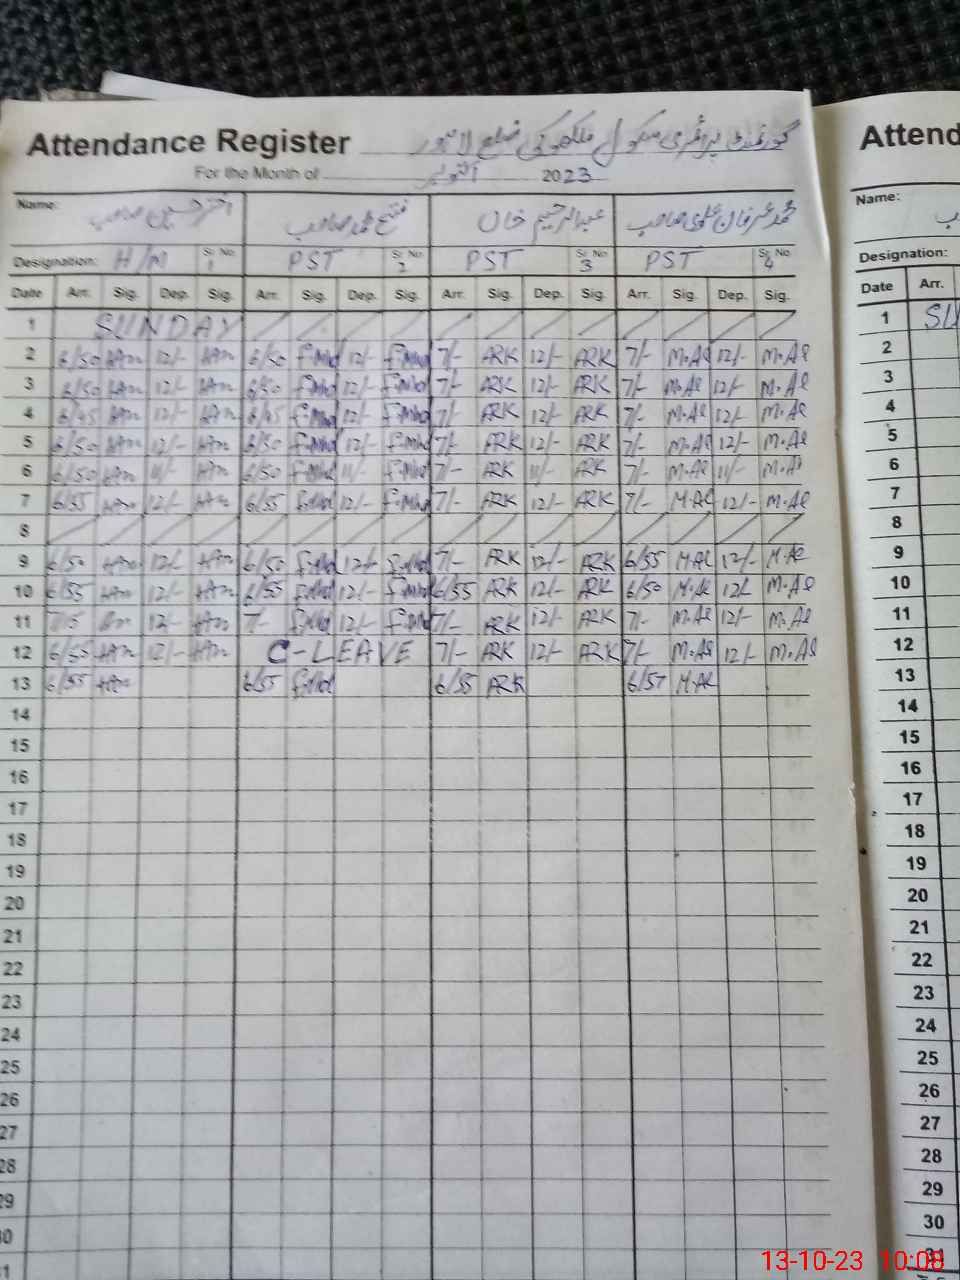 Attendance Register گورنمنٹ پرائمری سکول ضلع لاہور
For the Month of اکتوبر 2023
Name: اختر حسین صاحب فتح محمد صاحب عبدالرحیم خان محمد عرفان علوی صاحب
Designation: H/M Sr. No. 1 PST Sr. No. 2 PST Sr. No. 3 PST Sr. No. 4
Date Arr. Sig. Dep. Sig. Arr. Sig. Dep. Sig. Arr. Sig. Dep. Sig. Arr. Sig. Dep. Sig.
1 SUNDAY
2 6/50 HAm 12/- HAm 6/50 f.Mhd 12/- f.Mhd 7/- ARK 12/- ARK 7/- M.Al 12/- M.Al
3 6/50 HAm 12/- HAm 6/50 f.Mhd 12/- f.Mhd 7/- ARK 12/- ARK 7/- M.Al 12/- M.Al
4 6/45 HAm 12/- HAm 6/45 f.Mhd 12/- f.Mhd 7/- ARK 12/- ARK 7/- M.Al 12/- M.Al
5 6/50 HAm 12/- HAm 6/50 f.Mhd 12/- f.Mhd 7/- ARK 12/- ARK 7/- M.Al 12/- M.Al
6 6/50 HAm 11/- HAm 6/50 f.Mhd 11/- f.Mhd 7/- ARK 11/- ARK 7/- M.Al 11/- M.Al
7 6/55 HAm 12/- HAm 6/55 f.Mhd 12/- f.Mhd 7/- ARK 12/- ARK 7/- M.Al 12/- M.Al
8
9 6/50 HAm 12/- HAm 6/50 f.Mhd 12/- f.Mhd 7/- ARK 12/- ARK 6/55 M.Al 12/- M.Al
10 6/55 HAm 12/- HAm 6/55 f.Mhd 12/- f.Mhd 6/55 ARK 12/- ARK 6/50 M.Al 12/- M.Al
11 HAm 12/- HAm 7/- f.Mhd 12/- f.Mhd 7/- ARK 12/- ARK 7/- M.Al 12/- M.Al
12 6/55 HAm 12/- HAm C-LEAVE 7/- ARK 12/- ARK 7/- M.Al 12/- M.Al
13 6/55 HAm 6/55 f.Mhd 6/55 ARK 6/57 M.Al
14
15
16
17
18
19
20
21
22
23
24
25
26
27
28
29
30
31
Attend
Name:
Designation:
Date Arr.
1 SU
2
3
4
5
6
7
8
9
10
11
12
13
14
15
16
17
18
19
20
21
22
23
24
25
26
27
28
29
30
31
13-10-23 10:08